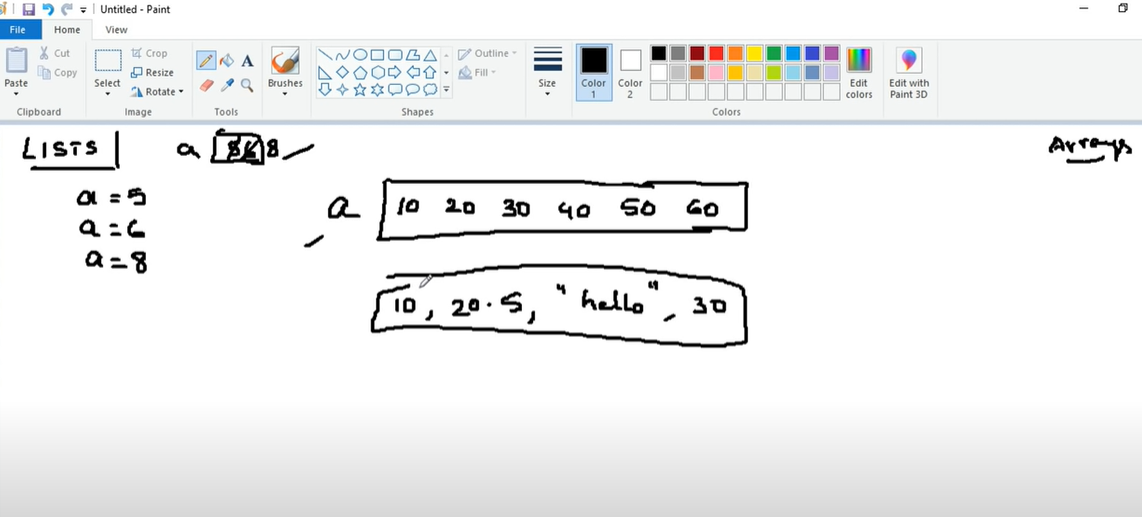 Untitled - Paint
File Home View
Paste
Cut
Copy
Clipboard
Select
Crop
Resize
Rotate
Image
A
Tools
Brushes
Outline
Fill
Shapes
Size
Color 1
Color 2
Colors
Edit colors
Edit with Paint 3D
LISTS
a 8
Arrays
a = 5
a = 6
a = 8
a 10 20 30 40 50 60
10, 20.5, "hello", 30